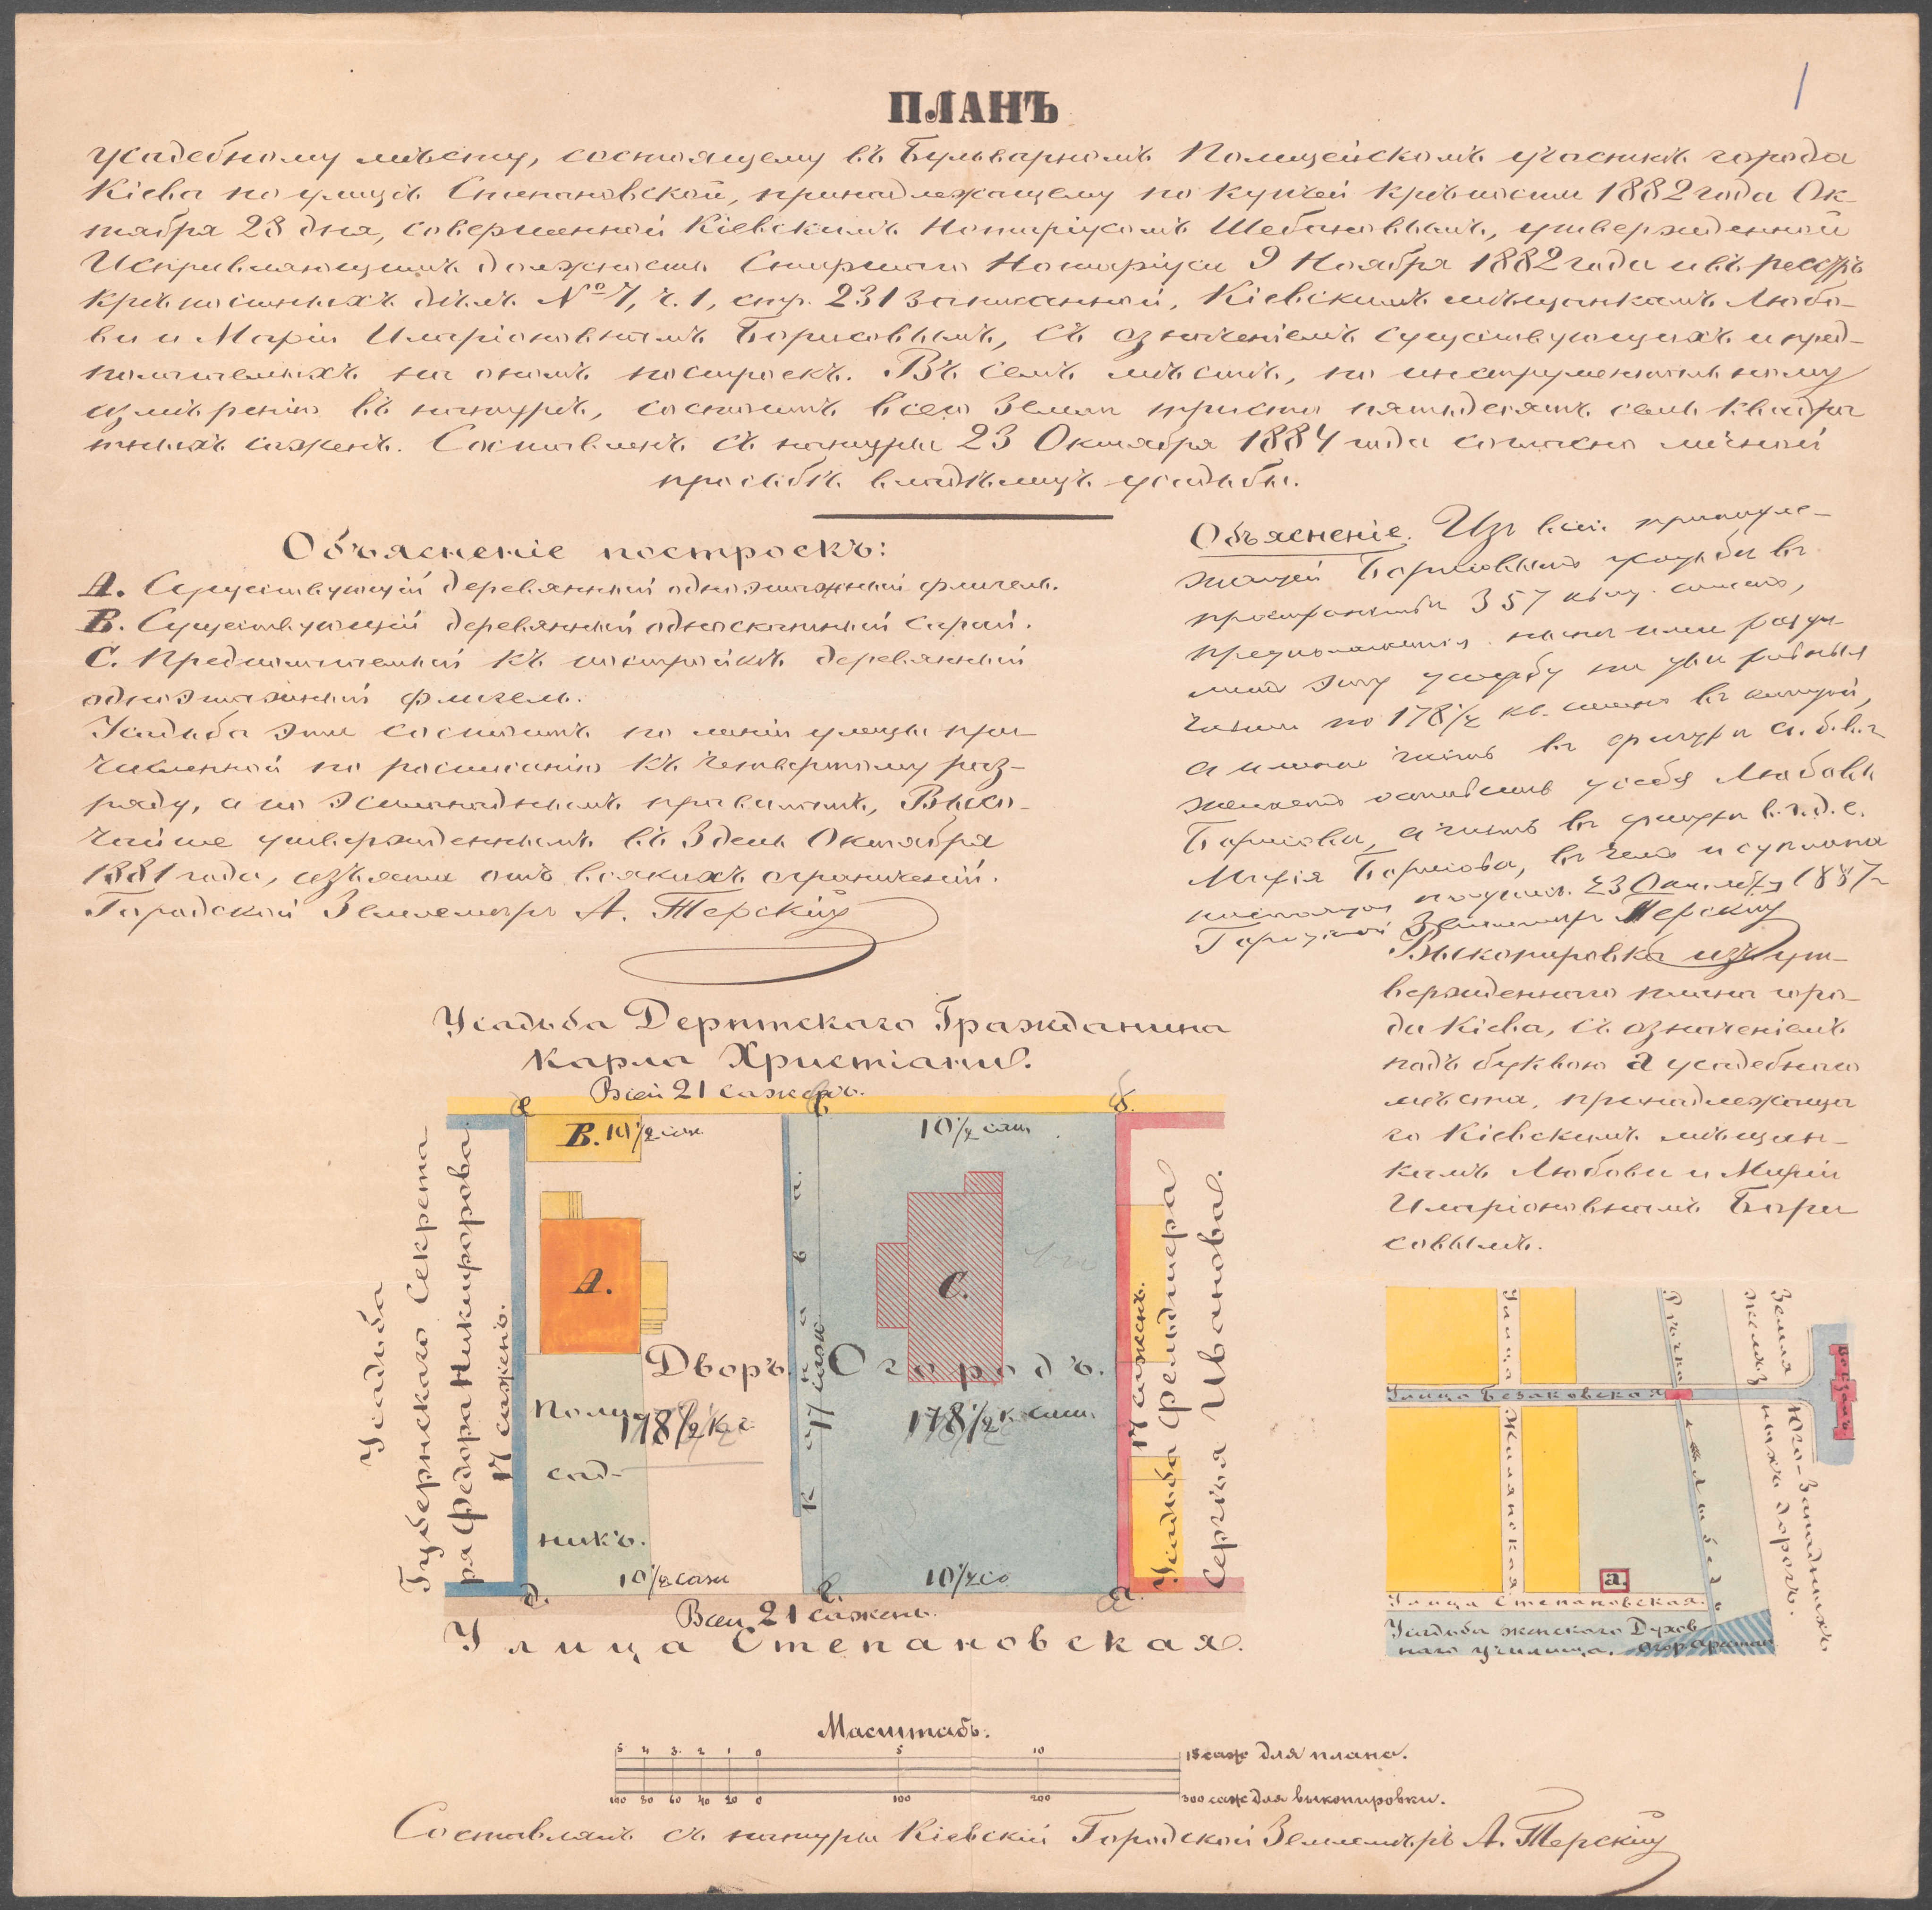 ПЛАНЪ
усадебному мѣсту, состоящему въ Бульварномъ Полицейскомъ участкѣ города
Кіева по улицѣ Степановской, принадлежащему по купчей крѣпости 1882 года Ок-
тября 28 дня, совершенной Кіевскимъ Нотаріусомъ Шебановымъ, утвержденной
Исправляющимъ должность Старшаго Нотаріуса 9 Ноября 1882 года и въ реестръ
крѣпостныхъ дѣлъ № 7, ч. 1, стр. 231 записанной, Кіевскимъ мѣщанкамъ Любо-
ви и Маріи Иларіоновнамъ Борисовымъ, съ означеніемъ существующихъ и пред-
полагаемыхъ на ономъ построекъ. Въ семъ мѣстѣ, по инструментальному
измѣренію въ натурѣ, состоитъ всего земли триста пятьдесятъ семь квадра
тныхъ сажень. Составленъ съ натуры 23 Октября 1884 года согласно личной
просьбѣ владѣлицъ усадьбы.
Объясненіе построекъ:
А. Существующій деревянный одноэтажный флигель.
В. Существующій деревянный односкатный сарай.
С. Предполагаемый къ постройкѣ деревянный
одноэтажный флигель.
Усадьба эта состоитъ по линіи улицы при
численной по росписанію къ четвертому раз-
ряду, а по эспланаднымъ правиламъ, Высо-
чайше утвержденнымъ въ 3 день Октября
1881 года, изъята отъ всякихъ ограниченій.
Городской Землемѣръ А. Терскій
Объясненіе. Изъ всей принадле-
жащей Борисовымъ усадьбы въ
пространствѣ 357 квад. сажень,
предположено нами раздѣ-
эту усадьбу на двѣ равныя
части по 178½ кв. сажень въ каждой,
а именно часть въ фигурѣ а.б.в.г
желаетъ оставить у себя Любовь
Борисова, а часть въ фигурѣ в.г.д.е.
Марія Борисова, въ чемъ и
23 Октября 1884 г
Городской Землемѣръ Терскій
Выкопировка изъ ут-
вержденнаго плана горо-
да Кіева, съ означеніемъ
подъ буквою а усадебнаго
мѣста, принадлежаща
го Кіевскимъ мѣщан-
камъ Любови и Маріи
Иларіоновнамъ Бори
совымъ.
Усадьба Дерптскаго Гражданина
Карла Христіани.
Всей 21 сажень.
е
в.
б.
В. 10½ саж
10½ саж
Усадьба
Губернскаго Секрета
ря Федора Никифорова
17 сажень.
А.
Дворъ.
Полисад-
никъ.
178½ к.с.
К а н а в а.
17 саж
С.
Огородъ.
178½ к. саж.
17 сажень.
Усадьба Фельдшера
Сергія Иванова.
10½ саж
10½ са
д.
г.
а.
Всей 21 сажень.
Улица Степановская.
Улица Жилянская
Рѣчка Лыбедь
Улица Безаковская
Земля Юго-Западныхъ
желѣзныхъ дорогъ.
Вокзалъ
а.
Улица Степановская.
Усадьба женскаго Духов-
наго училища.
Масштабъ.
5 4 3 2 1 0 5 10 15 саж для плана.
100 80 60 40 20 0 100 200 300 саж для выкопировки.
Составлялъ съ натуры Кіевскій Городской Землемѣръ А. Терскій